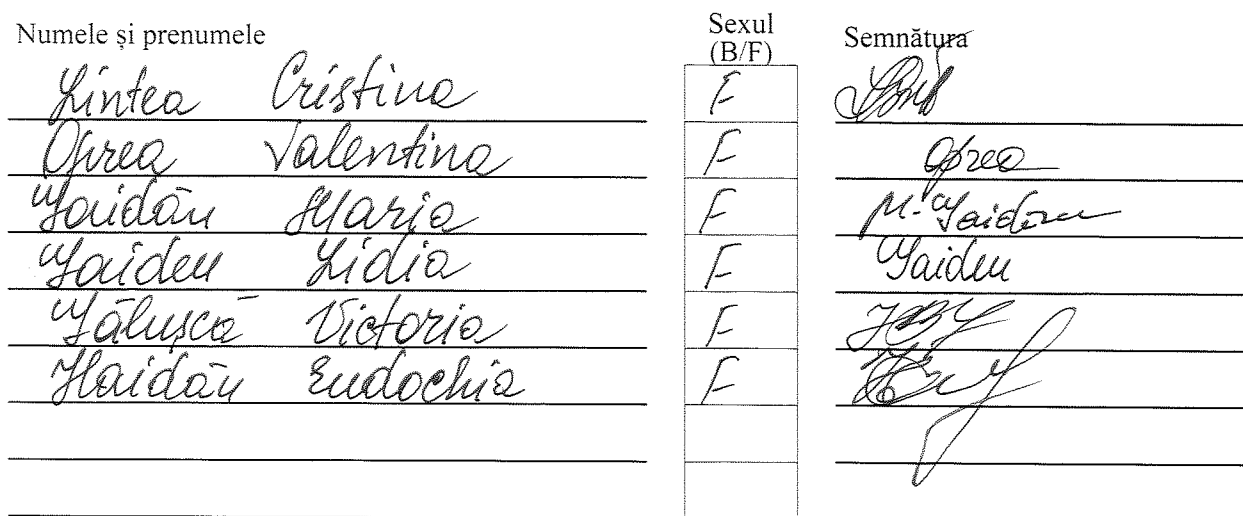 Numele și prenumele Sexul (B/F) Semnătura
Lintea Cristina F
Oprea Valentina F Oprea
Gaidău Maria F M. Gaidău
Gaideu Lidia F Gaideu
Gălușcă Victoria F
Haidău Eudochia F